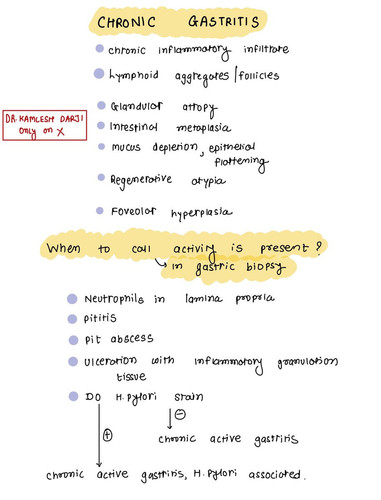 CHRONIC GASTRITIS
chronic inflammatory infiltrate
Lymphoid aggregates/follicles
Glandular atropy
DR.KAMLESH DARJI
only on X
Intestinal metaplasia
mucus depletion, epithelial
flattening
Regenerative atypia
Foveolar hyperplasia
When to call activity is present?
in gastric biopsy
Neutrophils in lamina propria
Pititis
Pit abscess
Ulceration with inflammatory granulation
tissue
Do H.Pylori stain
+
-
chronic active gastritis
chronic active gastritis, H.Pylori associated.